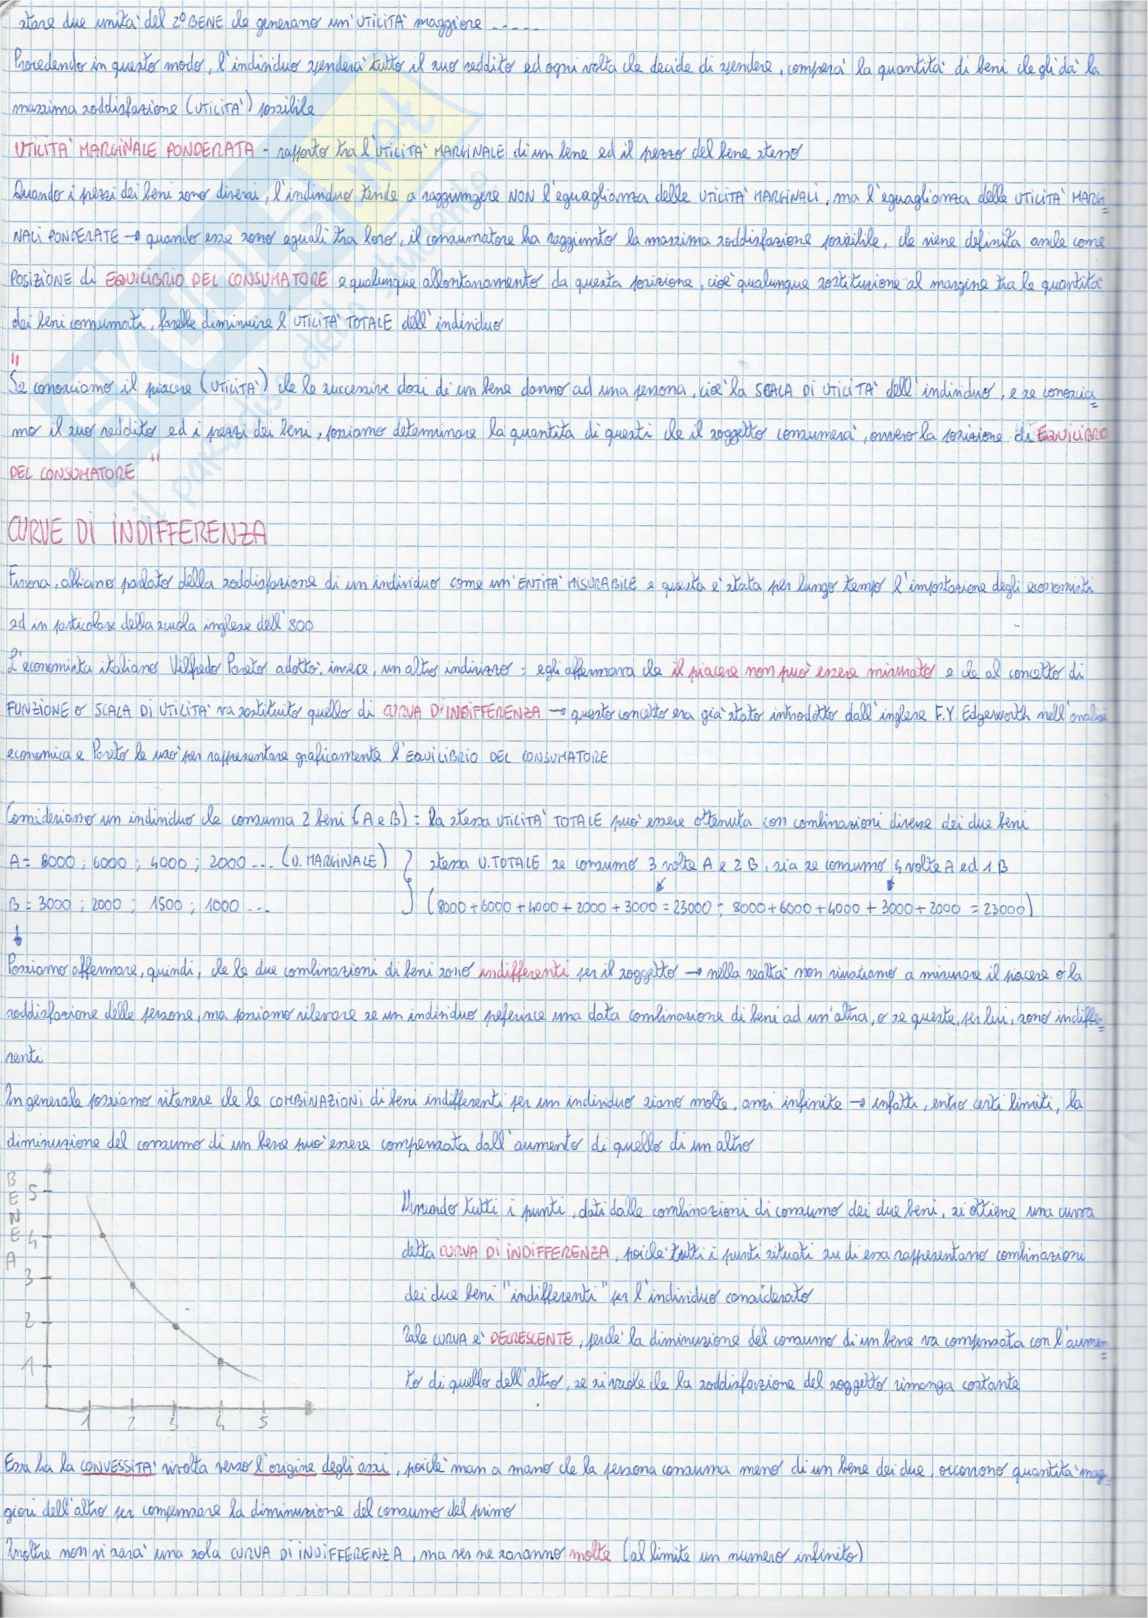 stare due unità del 2° BENE che generano un'UTILITÀ maggiore -----
Procedendo in questo modo, l'individuo spenderà tutto il suo reddito ed ogni volta che decide di spendere, comprerà la quantità di beni che gli dà la
massima soddisfazione (UTILITÀ) possibile
UTILITÀ MARGINALE PONDERATA - rapporto tra l'UTILITÀ MARGINALE di un bene ed il prezzo del bene stesso
Quando i prezzi dei beni sono diversi, l'individuo tende a raggiungere NON l'eguaglianza delle UTILITÀ MARGINALI, ma l'eguaglianza delle UTILITÀ MARGI=
NALI PONDERATE → quando esse sono eguali tra loro, il consumatore ha raggiunto la massima soddisfazione possibile, che viene definita anche come
POSIZIONE di EQUILIBRIO DEL CONSUMATORE e qualunque allontanamento da questa posizione, cioè qualunque sostituzione al margine tra le quantità
dei beni consumati, farebbe diminuire l'UTILITÀ TOTALE dell'individuo
"
Se conosciamo il piacere (UTILITÀ) che le successive dosi di un bene danno ad una persona, cioè la SCALA DI UTILITÀ dell'individuo, e se conoscia=
mo il suo reddito ed i prezzi dei beni, possiamo determinare la quantità di questi che il soggetto consumerà, ovvero la posizione di EQUILIBRIO
DEL CONSUMATORE "
CURVE DI INDIFFERENZA
Finora, abbiamo parlato della soddisfazione di un individuo come un'ENTITÀ MISURABILE e questa è stata per lungo tempo l'impostazione degli economisti
ed in particolare della scuola inglese dell'800
L'economista italiano Vilfredo Pareto adottò, invece, un altro indirizzo: egli affermava che il piacere non può essere misurato e che al concetto di
FUNZIONE o SCALA DI UTILITÀ va sostituito quello di CURVA D'INDIFFERENZA → questo concetto era già stato introdotto dall'inglese F.Y. Edgeworth nell'analisi
economica e Pareto la usò per rappresentare graficamente l'EQUILIBRIO DEL CONSUMATORE
Consideriamo un individuo che consuma 2 beni (A e B) : la stessa UTILITÀ TOTALE può essere ottenuta con combinazioni diverse dei due beni
A = 8000 ; 6000 ; 4000 ; 2000 ... (U. MARGINALE) } stessa U. TOTALE se consumo 3 volte A e 2 B, sia se consumo 4 volte A ed 1 B
B = 3000 ; 2000 ; 1500 ; 1000 ... (8000 + 6000 + 4000 + 2000 + 3000 = 23000 ; 8000 + 6000 + 4000 + 3000 + 2000 = 23000)
↓
Possiamo affermare, quindi, che le due combinazioni di beni sono indifferenti per il soggetto → nella realtà non riusciamo a misurare il piacere o la
soddisfazione delle persone, ma possiamo rilevare se un individuo preferisce una data combinazione di beni ad un'altra, o se queste, per lui, sono indiffe=
renti
In generale possiamo ritenere che le COMBINAZIONI di beni indifferenti per un individuo siano molte, anzi infinite → infatti, entro certi limiti, la
diminuzione del consumo di un bene può essere compensata dall'aumento di quello di un altro
BENE A
5
4
3
2
1
1 2 3 4 5
Unendo tutti i punti, dati dalle combinazioni di consumo dei due beni, si ottiene una curva
detta CURVA DI INDIFFERENZA, poichè tutti i punti situati su di essa rappresentano combinazioni
dei due beni "indifferenti" per l'individuo considerato
Tale CURVA è DECRESCENTE, perchè la diminuzione del consumo di un bene va compensata con l'aumen=
to di quello dell'altro, se si vuole che la soddisfazione del soggetto rimanga costante
Essa ha la CONVESSITÀ rivolta verso l'origine degli assi, poichè man a mano che la persona consuma meno di un bene dei due, occorrono quantità mag=
giori dell'altro per compensare la diminuzione del consumo del primo
Inoltre non vi sarà una sola CURVA DI INDIFFERENZA, ma ve ne saranno molte (al limite un numero infinito)